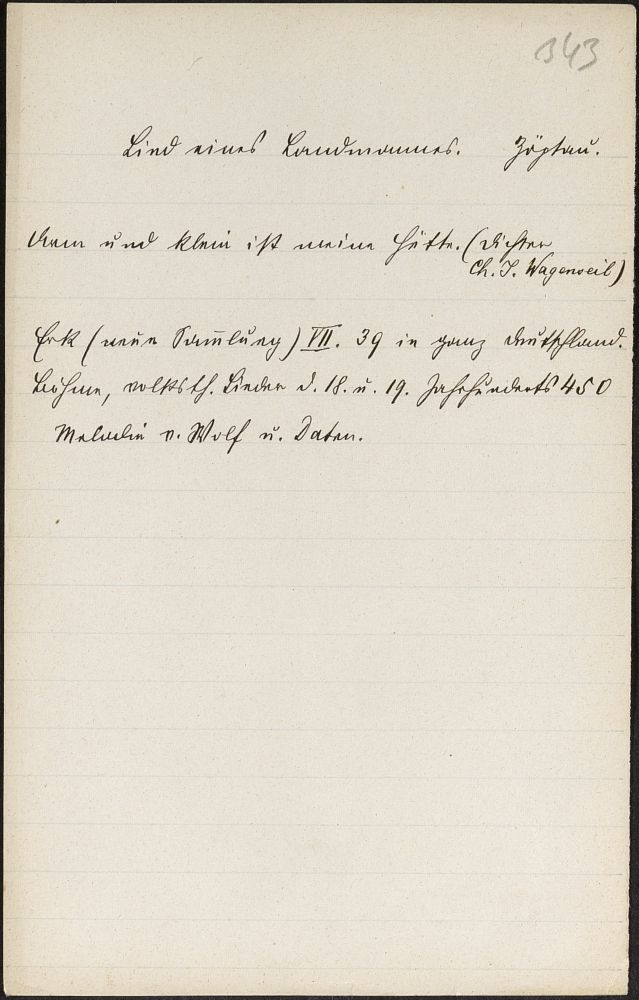 343
Lied eines Landmannes. Zöptau.
Arm und klein ist meine Hütte. (Dichter
Ch. J. Wagenseil)
Erk (neue Sammlung) VII. 39 in ganz Deutschland.
Böhme, volksth. Lieder d. 18. u. 19. Jahrhunderts 450
Melodie v. Wolf u. Daten.